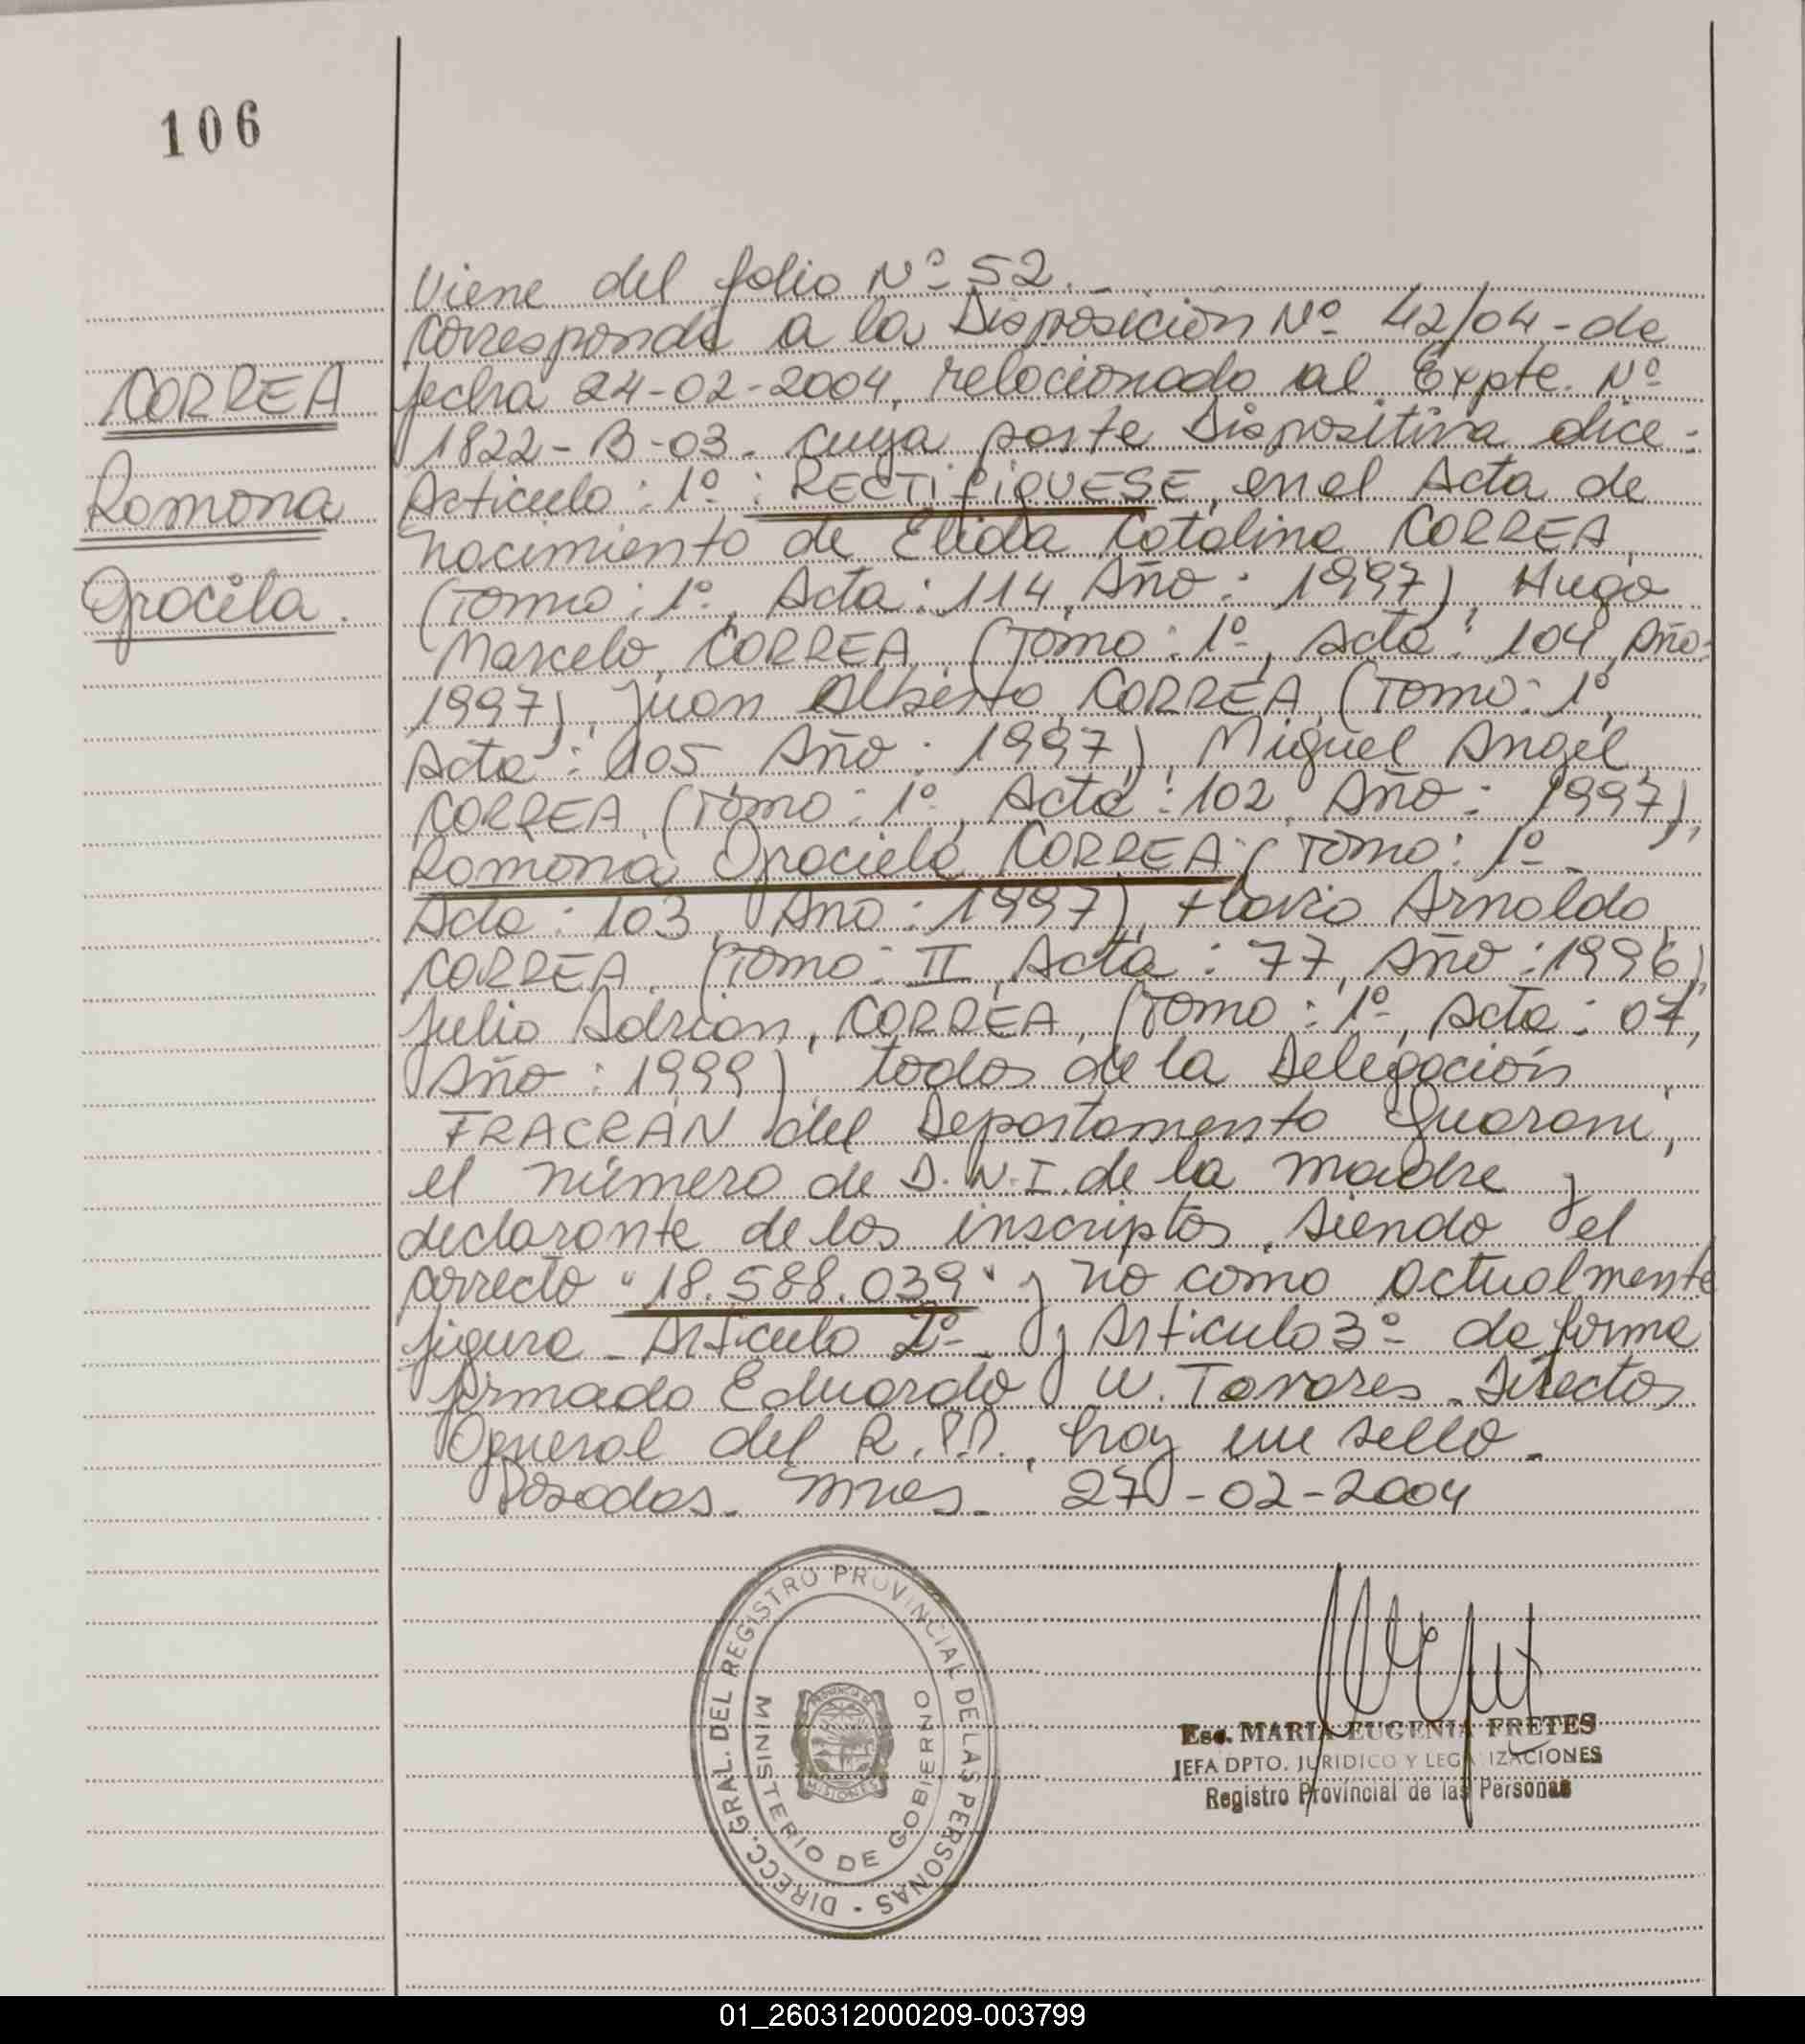 106
CORREA
Romona
Graciela.
Viene del folio Nº 52._
Corresponde a la Disposición Nº 42/04 - de
fecha 24-02-2004, relacionado al Expte. Nº
1822-B-03. cuya parte Dispositiva dice:
Articulo: 1º: RECTIFIQUESE, en el Acta de
nacimiento de Elida Catalina CORREA,
(Tomo: 1º, Acta: 114, Año: 1997), Hugo
Marcelo, CORREA, (Tomo: 1º, Acta: 104, Año:
1997), Juan Alberto, CORREA, (Tomo: 1º,
Acta: 105 Año: 1997), Miguel Angel,
CORREA, (Tomo: 1º, Acta: 102, Año: 1997),
Ramona Graciela, CORREA, (Tomo: 1º
Acta: 103, Año: 1997), Flavio Arnoldo,
CORREA, (Tomo: II, Acta: 77, Año: 1996),
Julio Adrian, CORREA, (Tomo: 1º, Acta: 07,
Año: 1999), todos de la Delegación
FRACRÁN del Departamento Guarani,
el número de D.N.I. de la madre y
declarante de los inscriptos, siendo el
correcto "18.588.039" y no como actualmente
figura - Articulo 2º - y Articulo 3º de forma
firmado Eduardo W. Tavares - Director
General del R.P.P., hay un sello.
Posadas. Mnes. 27-02-2004
DIRECC. GRAL. DEL REGISTRO PROVINCIAL DE LAS PERSONAS
MINISTERIO DE GOBIERNO
PROVINCIA DE
MISIONES
Esc. MARIA EUGENIA FRETES
JEFA DPTO. JURIDICO Y LEGALIZACIONES
Registro Provincial de las Personas
01_260312000209-003799